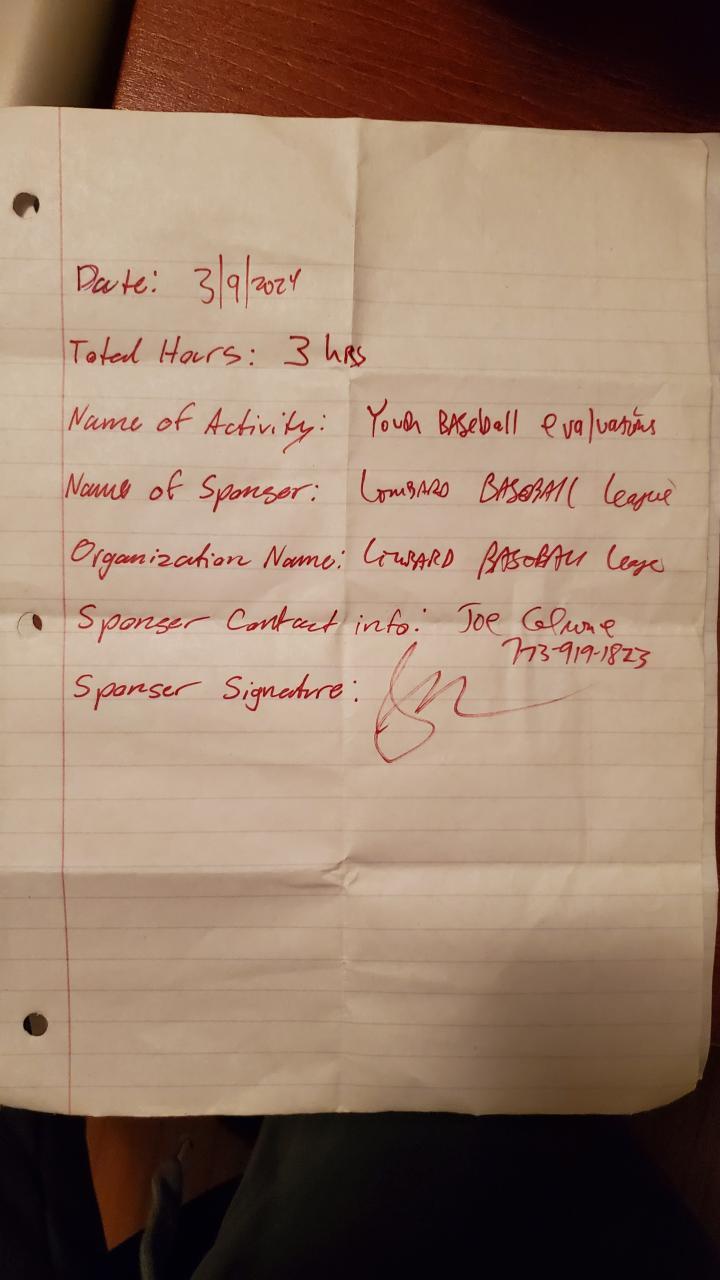 Date: 3/9/2024
Total Hours: 3 hRs
Name of Activity: Youth BASeball evaluations
Name of Sponser: LomBARD BASEBAll league
Organization Name: LomBARD BASEBAll
Sponser Contact info: Joe
773-919-1823
Sponser Signature: